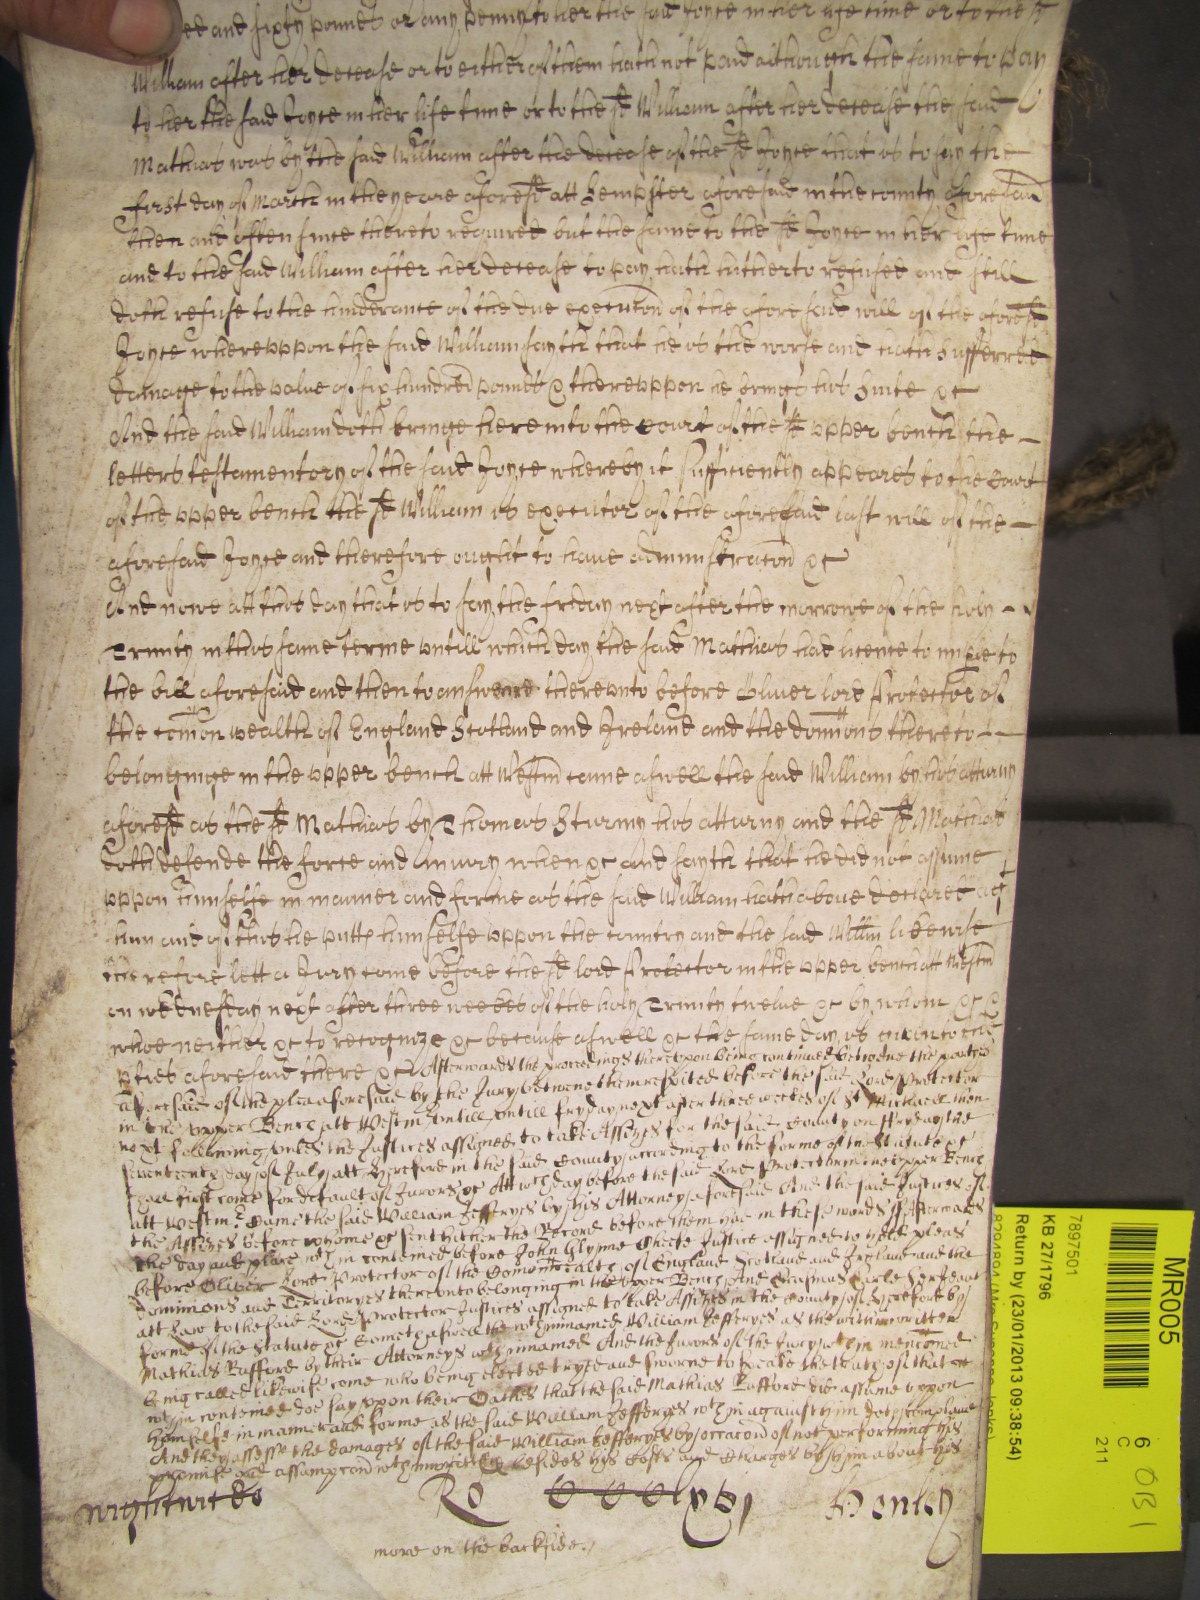 and sixty pounds or any penny to her the said Joyce in her life time or to the sd
William after her decease or to either of them hath not paid although the same to pay
to her the said Joyce in her life time or to the sd William after her decease the said
Mathias was by the said William after the decease of the sd Joyce that is to say the
first day of March in the yeare aforesd att Lempster aforesaid in the county aforesaid
then and often since thereto required but the same to the sd Joyce in her life time
and to the said William after her decease to pay hath hitherto refused and still
doth refuse to the hinderance of the due execution of the afore said will of the aforesd
Joyce whereuppon the said William sayth that he is the worse and hath sufferred
damage to the value of six hundred pounds & thereuppon he brings his suite &c
And the said William doth bringe here into the Court of the sd upper bench the
letters testamentory of the said Joyce whereby it sufficiently appeares to the Court
of the upper bench the sd William is executor of the aforesaid last will of the
aforesaid Joyce and therefore ought to have administracon &c
And nowe att this day that is to say the friday next after the morrowe of the holy
Trinity in this same terme untill which day the said Mathias had licence to imple to
the bill aforesaid and then to answeare thereunto before Oliver lord Protector of
the comon wealth of England Scotland and Ireland and the domions thereto
belonginge in the upper bench att Westm came aswell the said William by his atturny
aforesd as the sd Mathias by Thomas Sturmy his atturny and the sd Mathias
doth defende the force and iniury when &c and sayth that he did not assume
uppon himselfe in manner and forme as the said William hath above declared agt
him and of this he putts himselfe uppon the country and the said Willm likewise
therefore lett a Jury come before the sd lord Protector in the upper bench att Westm
on wednesday next after three weekes of the holy Trinity twelve &c by whom &c &
whoe neither &c to recognize &c because aswell &c the same day is given to the
pties aforesaid there &c Afterwards the proceedings thereupon being continued betweene the parties
aforesaid of the plea aforesaid by the Jury betweene them respited before the said Lord Protector
in the upper Bench att Westm untill untill fryday next after three weekes of St Michaell then
next following unles the Justices assigned to take Assizes for the said County on Fryday the
seventeenth day of July att Hereford in the said County according to the forme of the Statute &c
shall first come for default of Jurors &c Att wch day before the said Lord Protector in the upper Bench
att Westm came the said William Jefferyes by his Attorney aforesaid And the said Justices of
the Assizes before whome &c sent hither the Record before them had in these words Afterwards
the day and place wthin conteined before John Glynne Cheefe Justice assigned to hold pleas
before Oliver Lord Protector of the Comonwealth of England Scotland and Ireland and the
Dominions and Territoryes thereunto belonging in the upper Bench and Erasmus Earle Serjeant
att Law to the said Lord Protector Justices assigned to take Assizes in the County of Hereford by
forme of the Statute &c Cometh aswell the wthinnamed William Jefferyes as the within written
Mathias Rufford by their Attorneys wthinnamed And the Jurors of the Jury wthin mencioned
being called likewise come who being elected tryed and sworne to speake the truth of that &c
wthin conteined doe say upon their Oathes that the said Mathias Rufford did assume uppon
himselfe in manner and forme as the said William Jefferyes wthin against him doth complaine
And they assesse the damages of the said William Jefferyes by occacon of not performing his
promise and assumpcon wthin written besides his costs and charges by him about his
wightwicke
Ro
Henley
more on the backside.
MR005
6
C
211
7897501
KB 27/1796
Return by (23/01/2013 09:38:54)